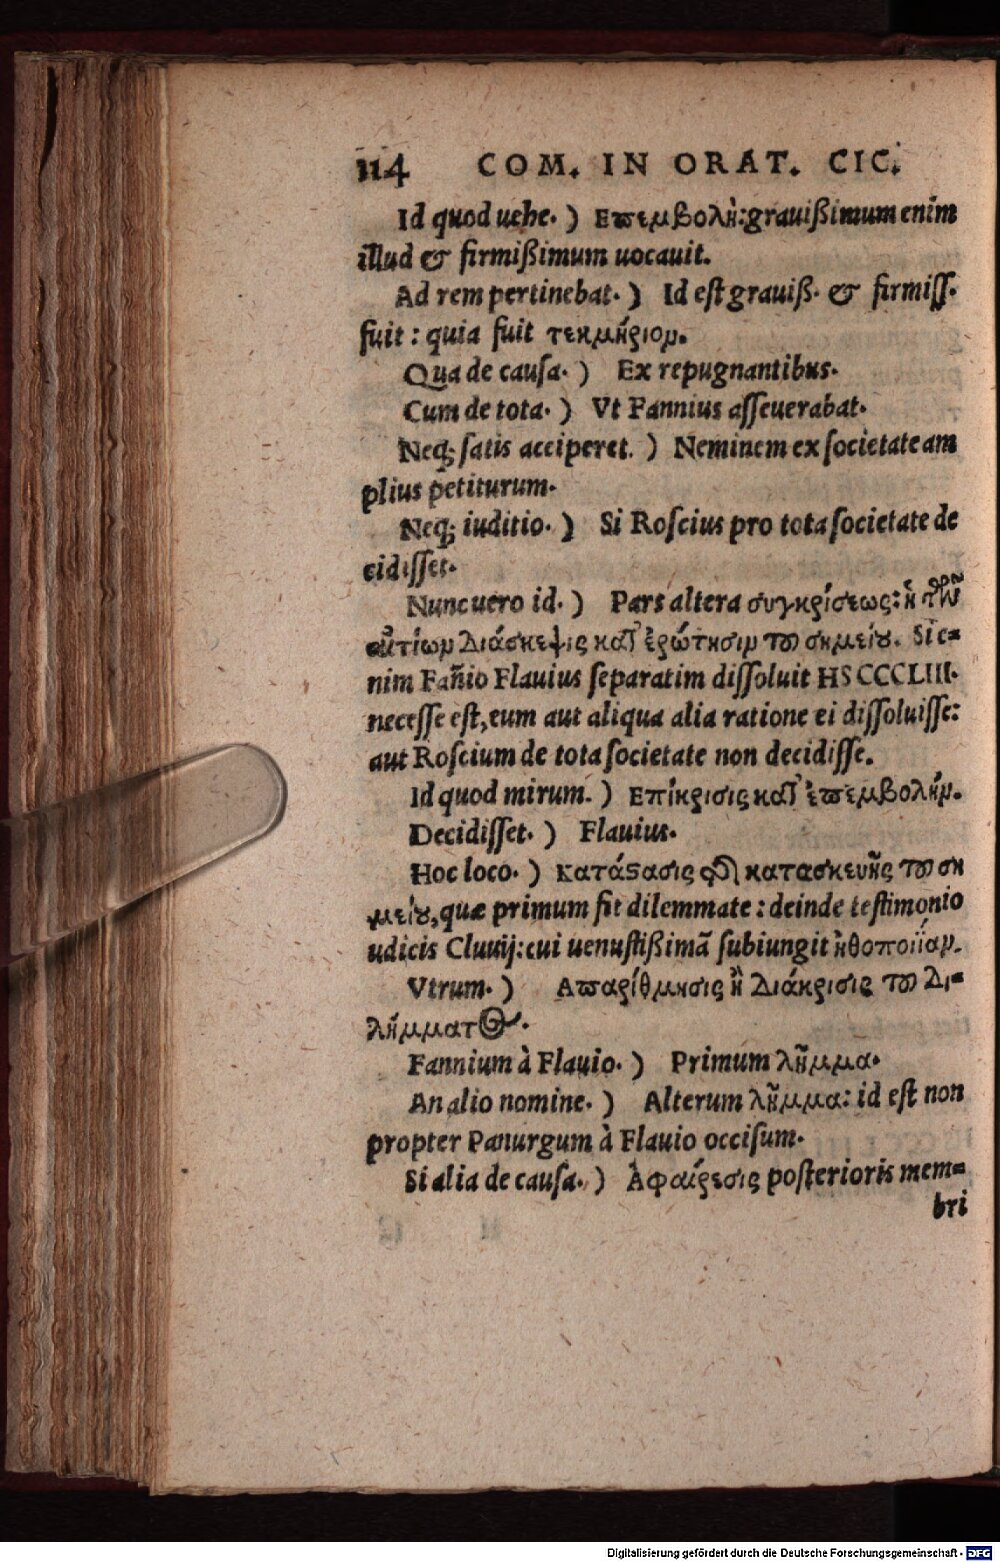 114 COM. IN ORAT. CIC.
Id quod uehe. ) Επεμβολὴ: grauißimum enim
illud & firmißimum uocauit.
Ad rem pertinebat. ) Id est grauiß. & firmiss.
fuit: quia fuit τεκμήριον.
Qua de causa. ) Ex repugnantibus.
Cum de tota. ) Vt Fannius asseuerabat.
Neq; satis acciperet. ) Neminem ex societate am
plius petiturum.
Neq; iuditio. ) Si Roscius pro tota societate de
cidisset.
Nunc uero id. ) Pars altera συγκρίσεως: ἡ τῶν
αἰτίων διάσκεψις καὶ ἐρώτησιν τοῦ σημείου. Si e-
nim Fañio Flauius separatim dissoluit HS CCCLIII.
necesse est, eum aut aliqua alia ratione ei dissoluisse:
aut Roscium de tota societate non decidisse.
Id quod mirum. ) Επίκρισις καὶ ἐπεμβολήν.
Decidisset. ) Flauius.
Hoc loco. ) Κατάστασις κατασκευῆς τοῦ ση
μείου, quæ primum fit dilemmate: deinde testimonio
udicis Cluuij: cui uenustißimā subiungit ἠθοποιίαν.
Vtrum. ) Απαρίθμησις ἢ διάκρισις τοῦ δι-
λήμματος.
Fannium à Flauio. ) Primum λῆμμα.
An alio nomine. ) Alterum λῆμμα: id est non
propter Panurgum à Flauio occisum.
Si alia de causa. ) Ἀφαίρεσις posterioris mem-
bri
Digitalisierung gefördert durch die Deutsche Forschungsgemeinschaft - DFG